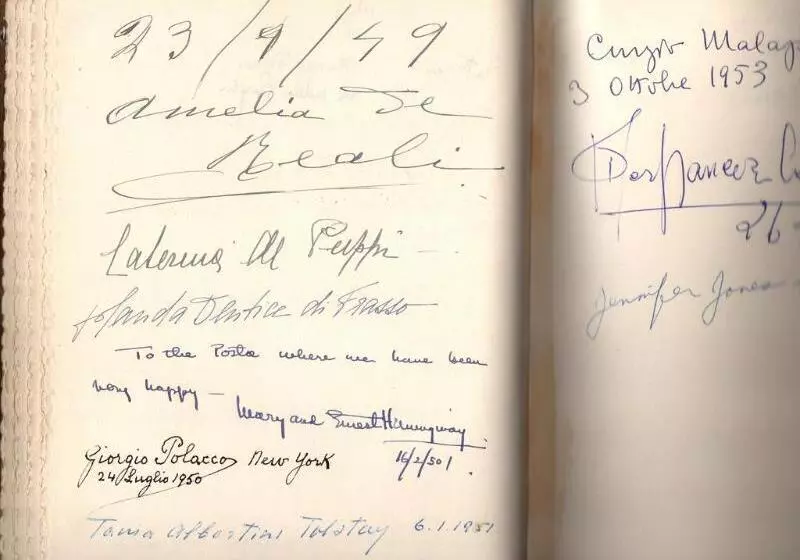 23/9/49
Amelia de
Reali
Caterina
Jolanda Dentice di Frasso
To the Posta where we have been
very happy –
Mary and Ernest Hemingway
16/2/50
Giorgio Polacco New York
24 Luglio 1950
Tania Albertini Tolstoy 6.1.1951
Curzio Malap
3 Ottobre 1953
26
Jennifer Jones